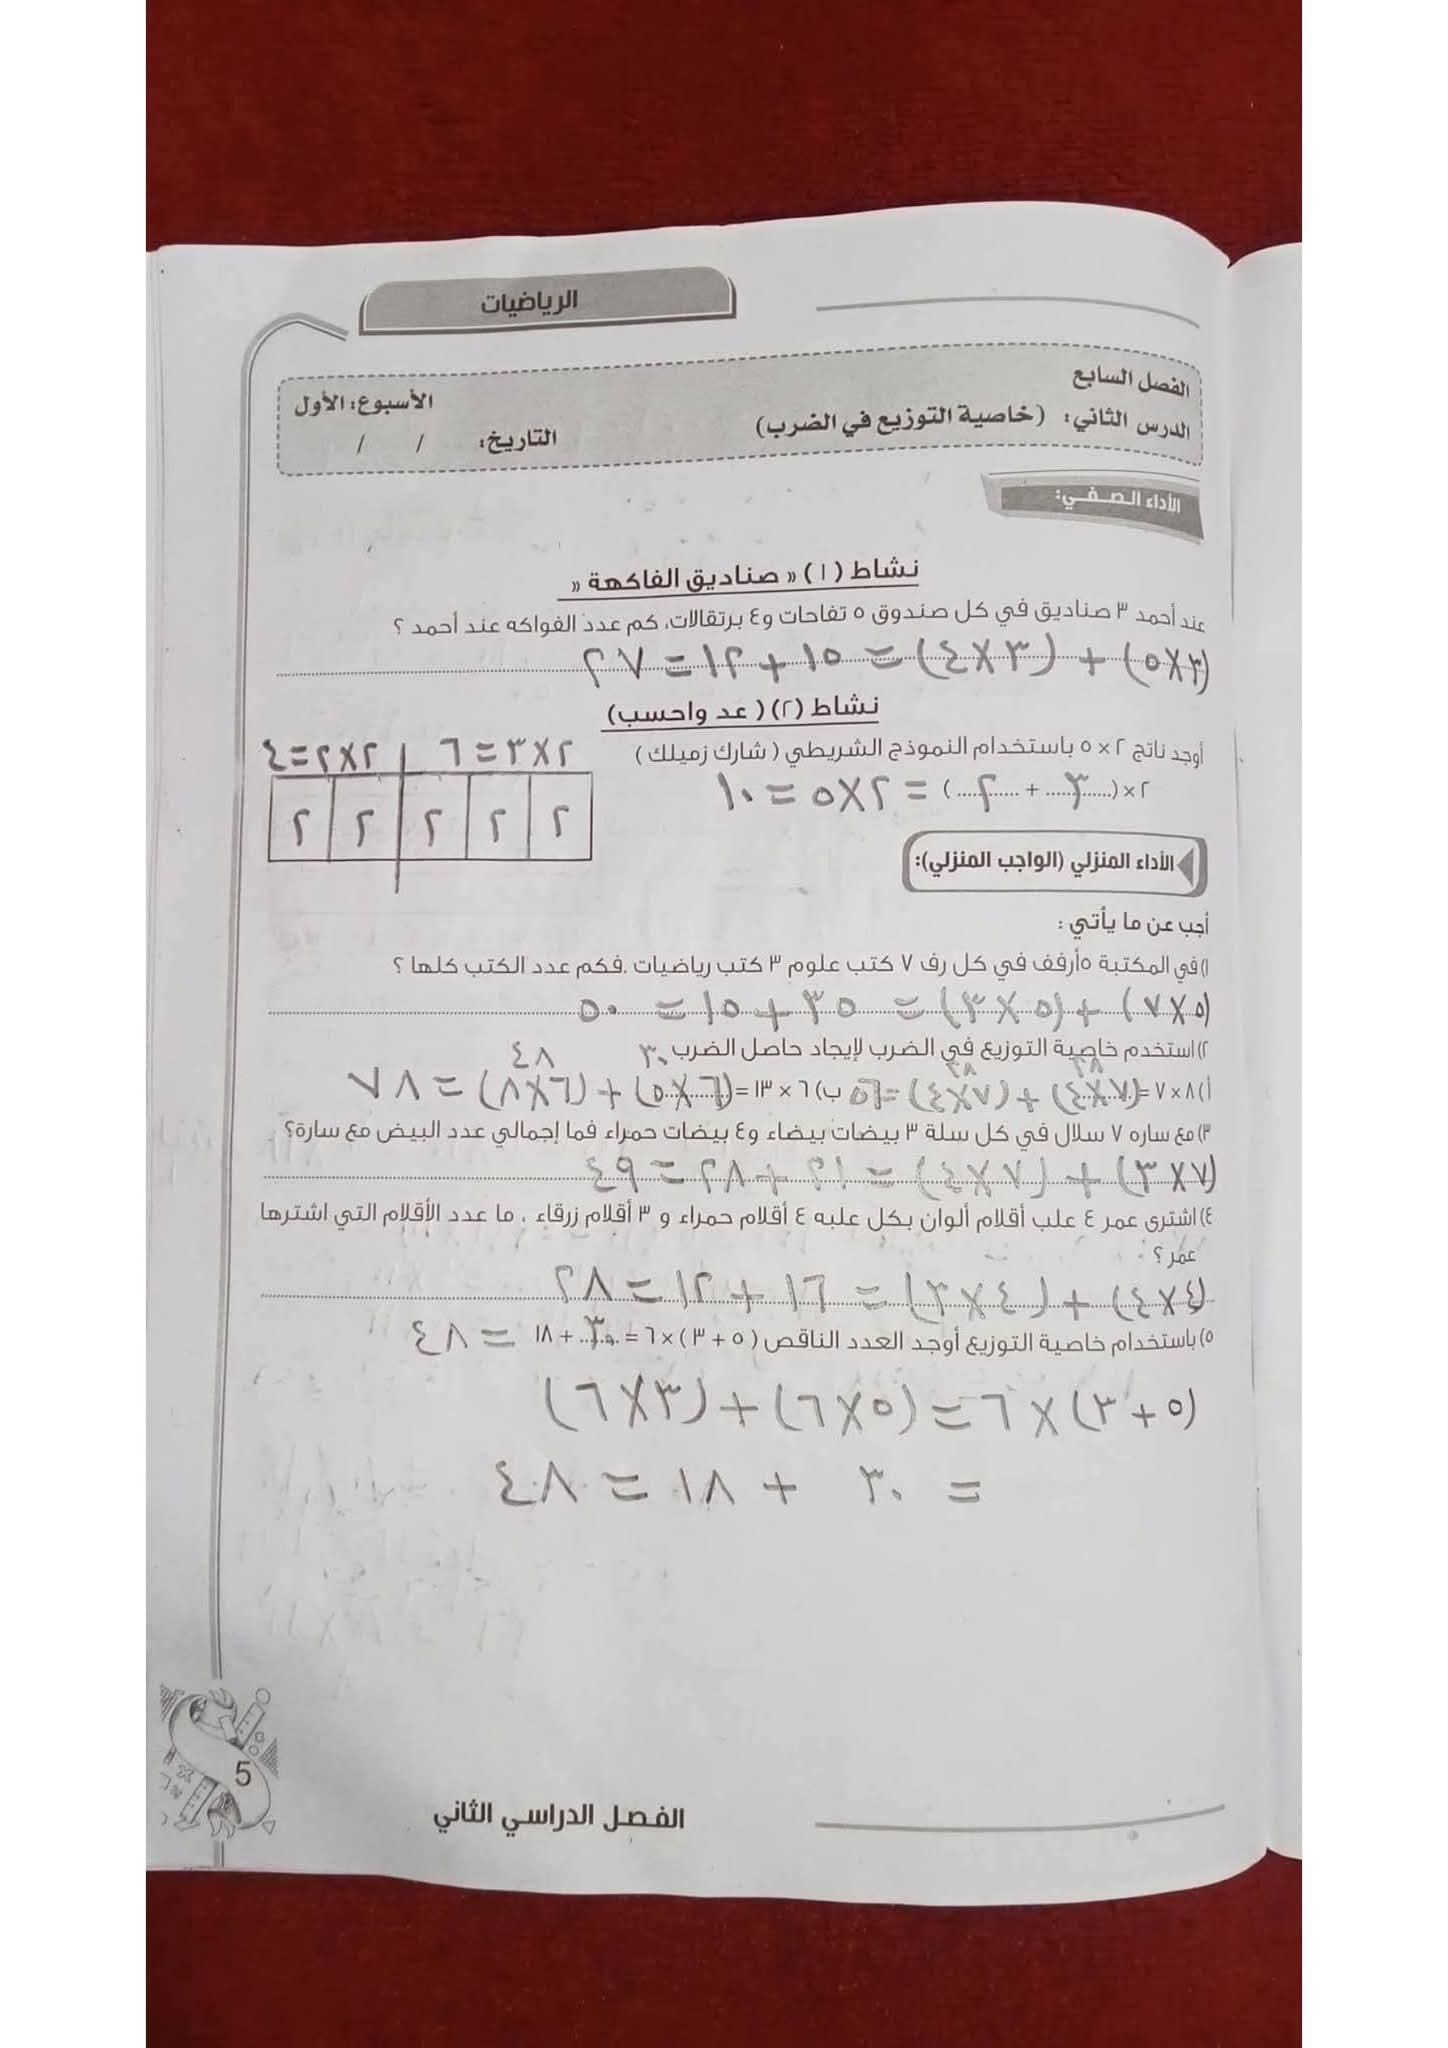 الرياضيات
الفصل السابع
الدرس الثاني: (خاصية التوزيع في الضرب)
الأسبوع: الأول
التاريخ: / /
الأداء الصفي:
نشاط (١) « صناديق الفاكهة »
عند أحمد ٣ صناديق في كل صندوق ٥ تفاحات و٤ برتقالات، كم عدد الفواكه عند أحمد ؟
(٣×٥) + (٣×٤) = ١٥ + ١٢ = ٢٧
نشاط (٢) ( عد واحسب)
أوجد ناتج ٢ × ٥ باستخدام النموذج الشريطي ( شارك زميلك )
٢×٣=٦ | ٢×٢=٤
٢ × (٣ + ٢) = ٢×٥ = ١٠
٢ ٢ ٢ ٢ ٢
الأداء المنزلي (الواجب المنزلي):
أجب عن ما يأتي :
١) في المكتبة ٥أرفف في كل رف ٧ كتب علوم ٣ كتب رياضيات .فكم عدد الكتب كلها ؟
(٥×٧) + (٥×٣) = ٣٥ + ١٥ = ٥٠
٢) استخدم خاصية التوزيع في الضرب لإيجاد حاصل الضرب
٢٨ ٢٨ ٣٠ ٤٨
أ) ٨ × ٧ = (٧×٤) + (٧×٤) = ٥٦ ب) ٦ × ١٣ = (٦×٥) + (٦×٨) = ٧٨
٣) مع ساره ٧ سلال في كل سلة ٣ بيضات بيضاء و٤ بيضات حمراء فما إجمالي عدد البيض مع سارة؟
(٧×٣) + (٧×٤) = ٢١ + ٢٨ = ٤٩
٤) اشترى عمر ٤ علب أقلام ألوان بكل علبه ٤ أقلام حمراء و ٣ أقلام زرقاء ، ما عدد الأقلام التي اشترها
عمر ؟
(٤×٤) + (٤×٣) = ١٦ + ١٢ = ٢٨
٥) باستخدام خاصية التوزيع أوجد العدد الناقص ( ٥ + ٣ ) × ٦ = ٣٠ + ١٨ = ٤٨
(٥ + ٣) × ٦ = (٥×٦) + (٣×٦)
= ٣٠ + ١٨ = ٤٨
5
الفصل الدراسي الثاني